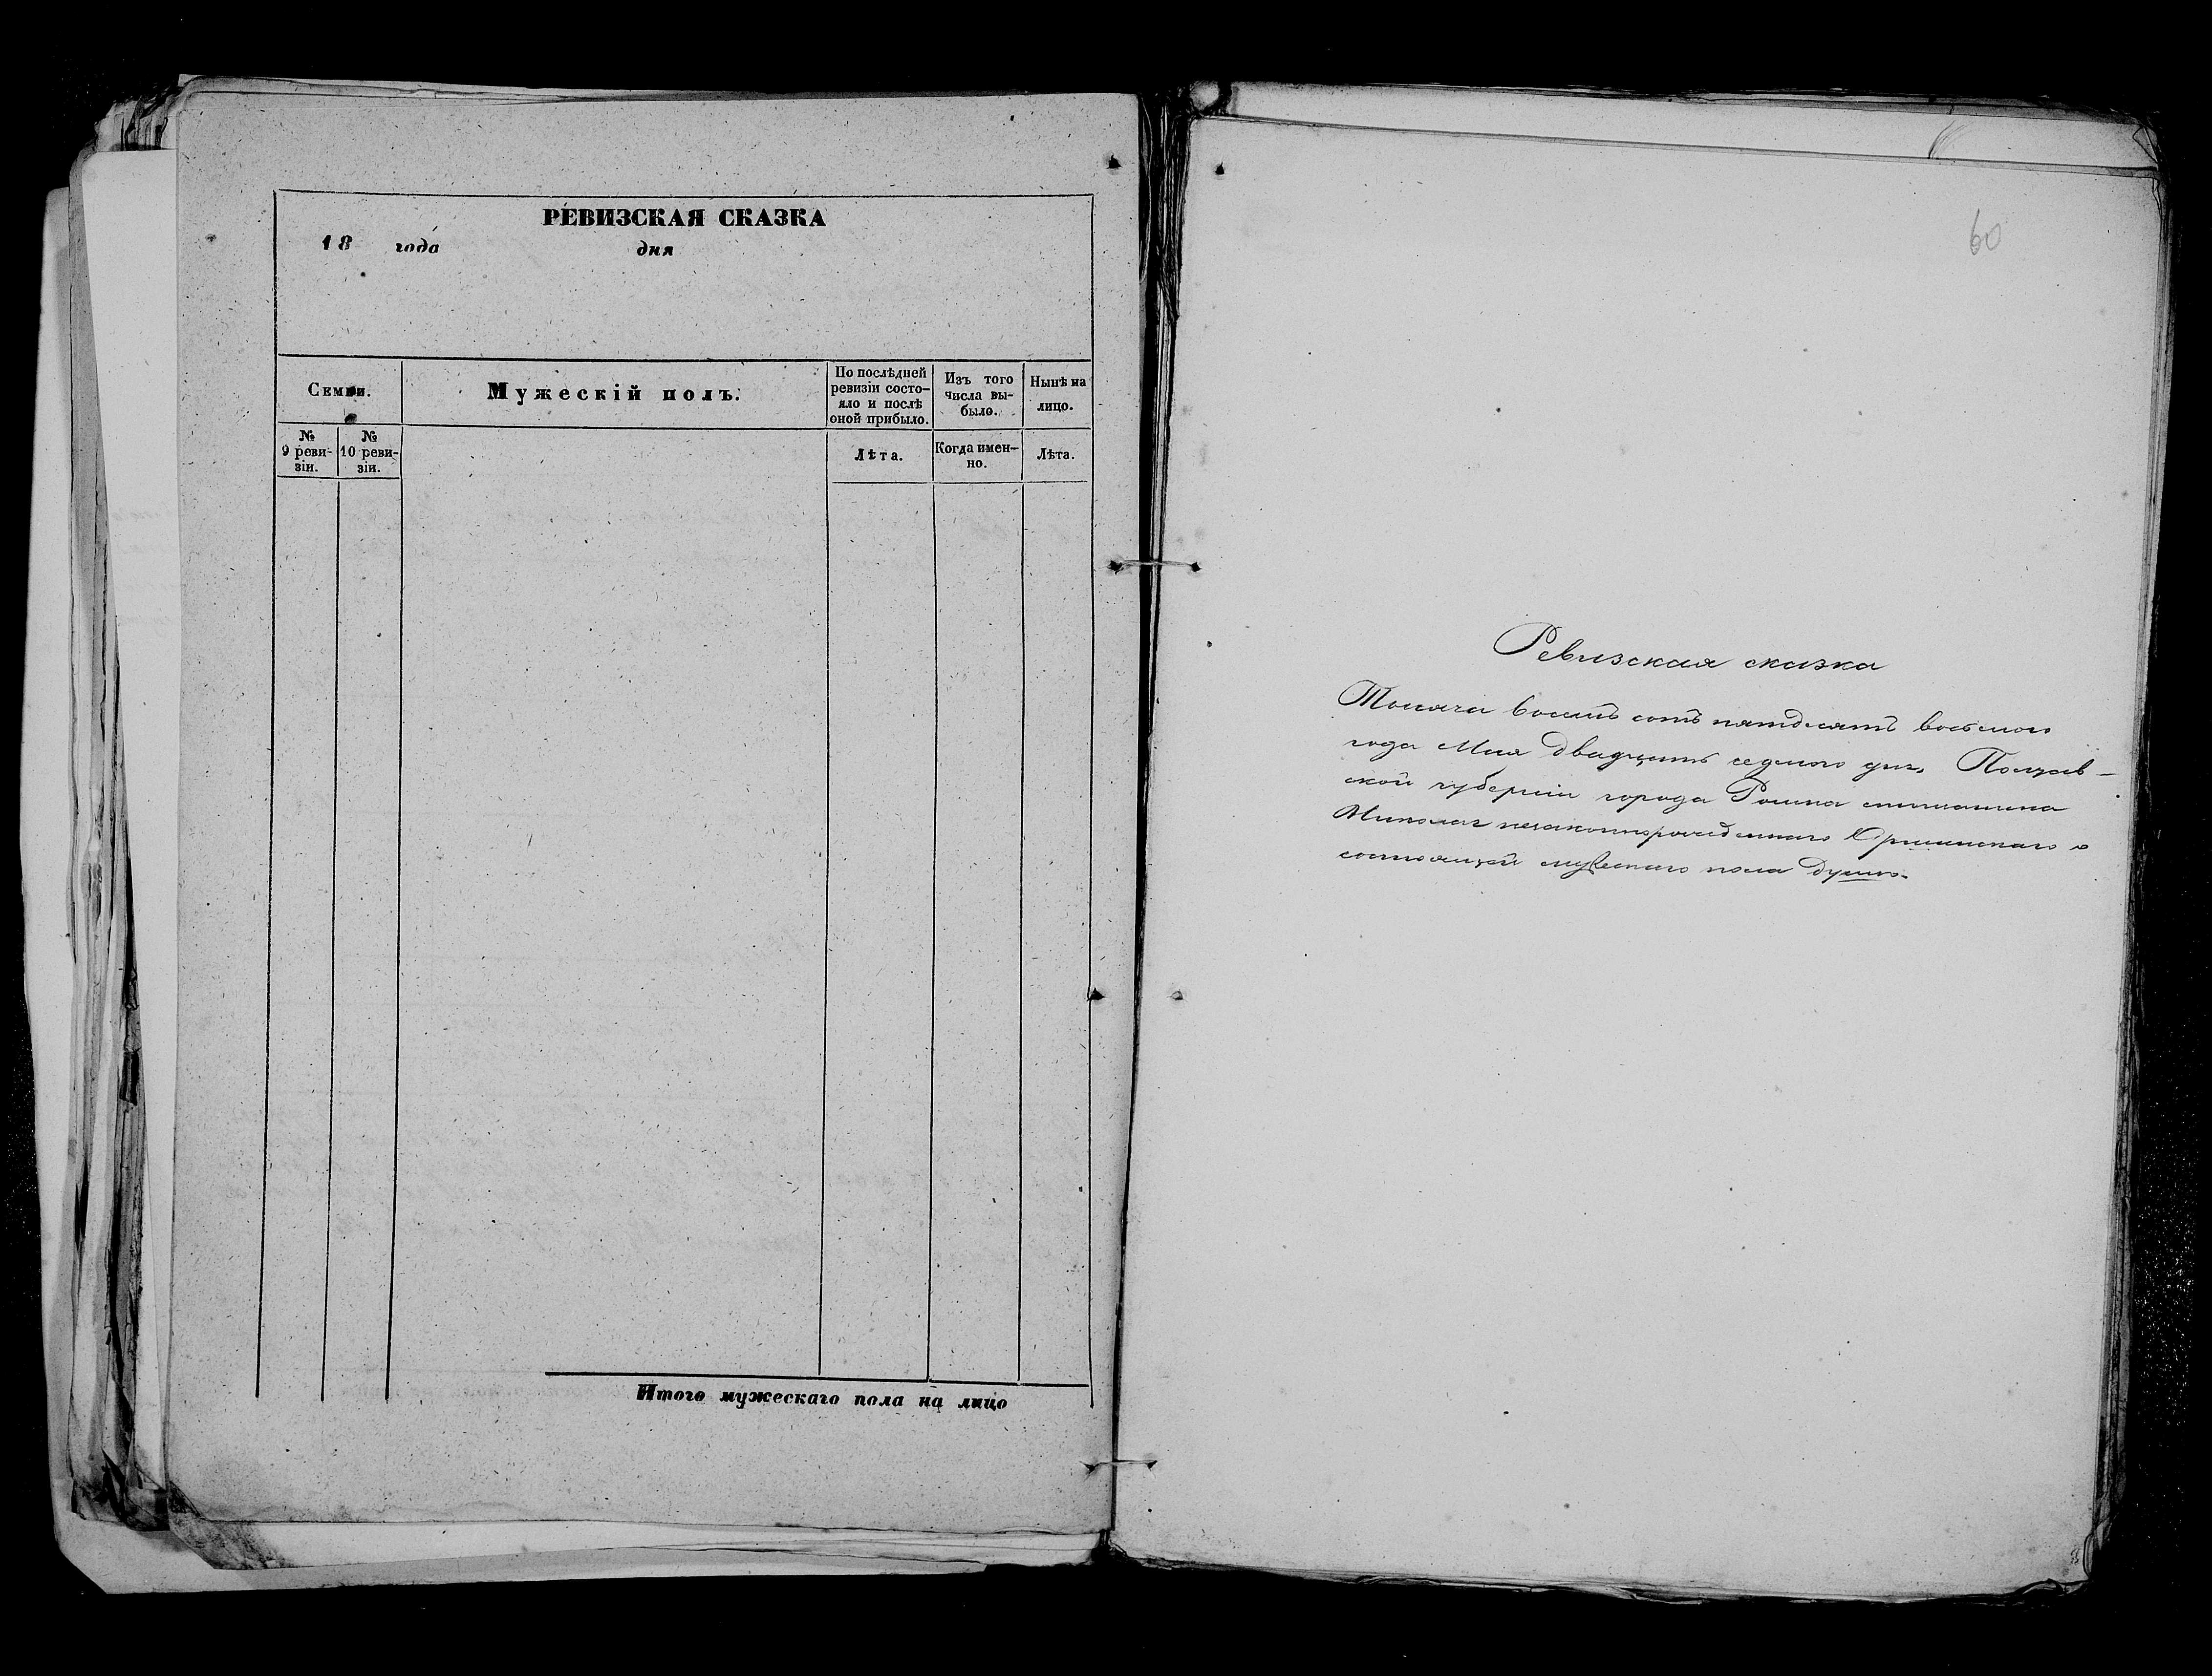 РЕВИЗСКАЯ СКАЗКА
18 года дня
Семьи.
Мужескій полъ.
По послѣдней
ревизіи состо-
яло и послѣ
оной прибыло.
Изъ того
числа вы-
было.
Нынѣ на
лицо.
№
9 реви-
зіи.
№
10 реви-
зіи.
Лѣта.
Когда имен-
но.
Лѣта.
Итого мужескаго пола на лицо
60
Ревизская сказка
Тысяча восемь сотъ пятдесятъ восьмого
года Мая двадцать седмого дня, Полтав-
ской губерніи города Ромна мещанина
Николая незаконнорожденнаго о
состоящей мужескаго пола душѣ.